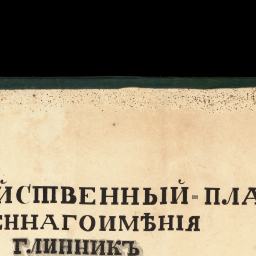 ЙСТВЕННЫЙ-ПЛА
ЕННАГОИМѢНІЯ
ГЛИННИКЪ